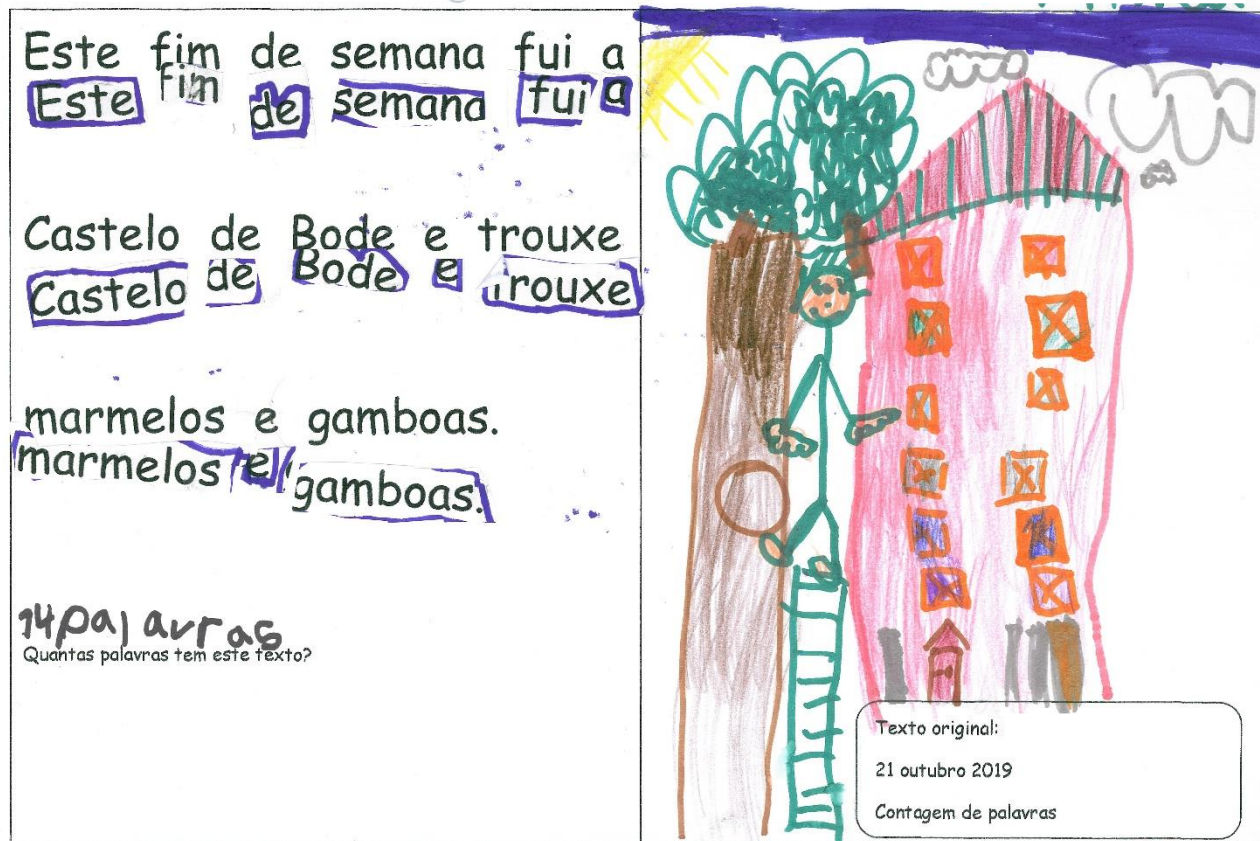 Este fim de semana fui a
Este fim de semana fui a
Castelo de Bode e trouxe
Castelo de Bode e trouxe
marmelos e gamboas.
marmelos e gamboas.
14 palavras
Quantas palavras tem este texto?
Texto original:
21 outubro 2019
Contagem de palavras